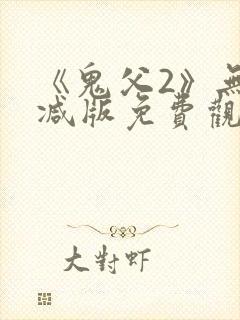 《鬼父2》無
减版免費觀
大對虾